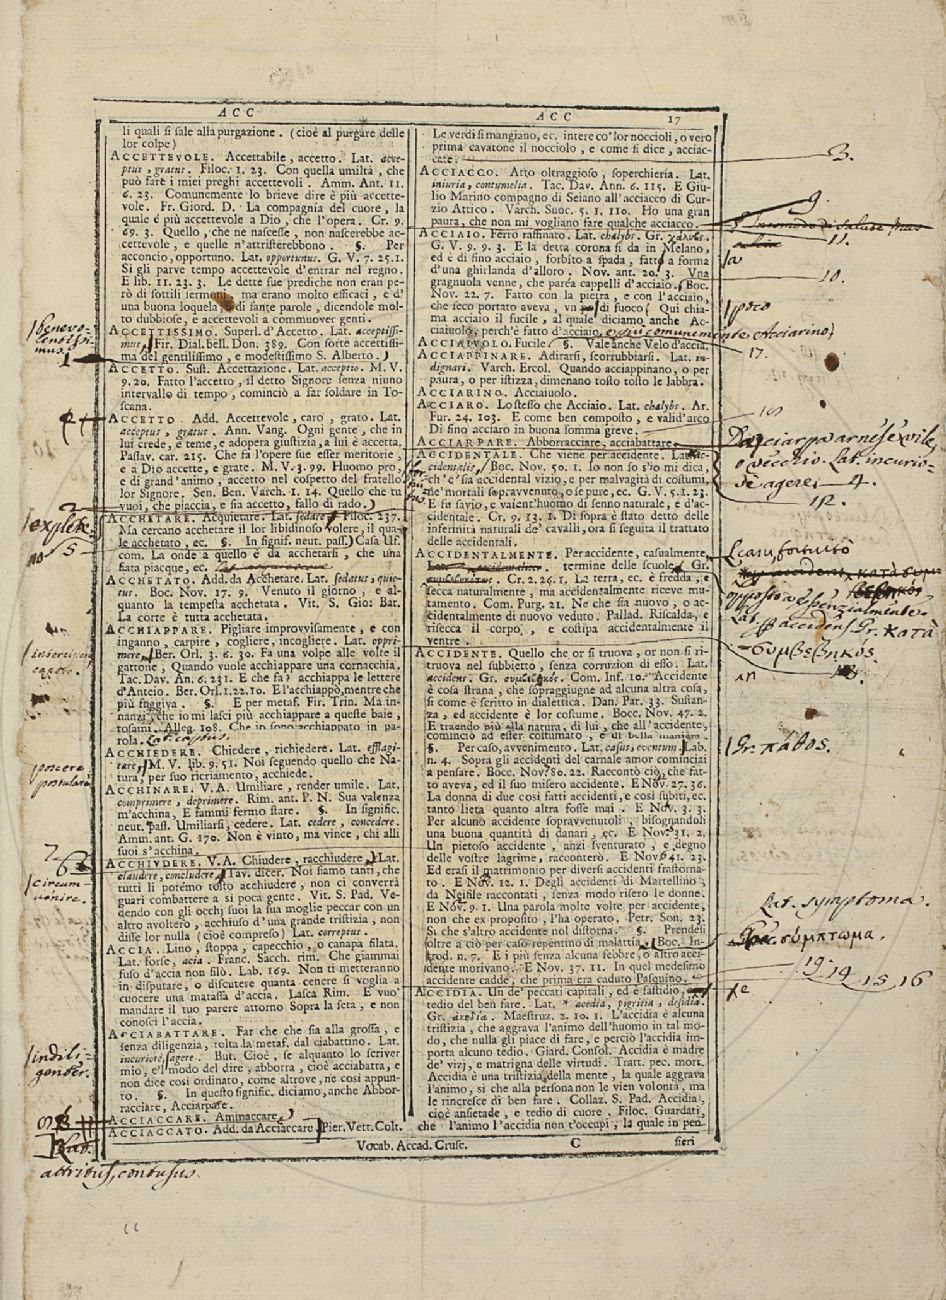 ACC
ACC
17
li quali si sale alla purgazione. (cioè al purgare delle
lor colpe)
ACCETTEVOLE. Accettabile, accetto. Lat. acce-
ptus, gratus. Filoc. 1. 23. Con quella umiltà, che
può fare i miei preghi accettevoli. Amm. Ant. 11.
6. 23. Comunemente lo brieve dire è più accette-
vole. Fr. Giord. D. La compagnía del cuore, la
quale è più accettevole a Dio, che l'opera. Cr. 9.
69. 3. Quello, che ne nascesse, non nascerebbe ac-
cettevole, e quelle n'attristerebbono. §. Per
acconcio, opportuno. Lat. opportunus. G. V. 7. 25. 1.
Si gli parve tempo accettevole d'entrar nel regno.
E lib. 11. 23. 3. Le dette sue prediche non eran pe-
rò di sottili sermoni, ma erano molto efficaci, e d'
una buona loquela, e di sante parole, dicendole mol-
to dubbiose, e accettevoli a commuover genti.
ACCETTISSIMO. Superl. d'Accetto. Lat. acceptissi-
mus. Fir. Dial. bell. Don. 389. Con sorte accettissi-
ma del gentilissimo, e modestissimo S. Alberto.
ACCETTO. Sust. Accettazione. Lat. acceptio. M. V.
9. 20. Fatto l'accetto, il detto Signore senza niuno
intervallo di tempo, cominciò a far soldare in To-
scana.
ACCETTO. Add. Accettevole, caro, grato. Lat.
acceptus, gratus. Ann. Vang. Ogni gente, che in
lui crede, e teme, e adopera giustizia, a lui è accetta.
Passav. car. 215. Che fa l'opere sue esser meritorie,
e a Dio accette, e grate. M. V. 3. 99. Huomo pro,
e di grand'animo, accetto nel cospetto del fratello
lor Signore. Sen. Ben. Varch. 1. 14. Quello che tu
vuoi, che piaccia, e sia accetto, fallo di rado.
ACCHETARE. Acquietare. Lat. sedare. Filoc. 237.
Ma cercano acchetare il lor libidinoso volere, il qua-
le acchetato, ec. §. In signif. neut. pass. Casa Uf.
com. La onde a quello è da acchetarsi, che una
fiata piacque, ec.
ACCHETATO. Add. da Acchetare. Lat. sedatus, quie-
tus. Boc. Nov. 17. 9. Venuto il giorno, e al-
quanto la tempesta acchetata. Vit. S. Gio: Bat.
La corte è tutta acchetata.
ACCHIAPPARE. Pigliare improvvisamente, e con
inganno, carpire, cogliere, incogliere. Lat. oppri-
mere. Ber. Orl. 3. 6. 30. Fa una volpe alle volte il
gattone, Quando vuole acchiappare una cornacchia.
Tac. Dav. An. 6. 231. E che fa? acchiappa le lettere
d'Anteio. Ber. Orl. 1. 22. 10. E l'acchiappò, mentre che
più fuggiva. §. E per metaf. Fir. Trin. Ma in-
nanzi, che io mi lasci più acchiappare a queste baie,
tosami. Alleg. 108. Che io sono acchiappato in pa-
rola. Lat. captus.
ACCHIEDERE. Chiedere, richiedere. Lat. efflagi-
tare. M. V. lib. 9. 51. Noi seguendo quello che Na-
tura, per suo ricriamento, acchiede.
ACCHINARE. V. A. Umiliare, render umile. Lat.
comprimere, deprimere. Rim. ant. P. N. Sua valenza
m'acchina, E fammi fermo stare. §. In signific.
neut. pass. Umiliarsi, cedere. Lat. cedere, concedere.
Amm. ant. G. 170. Non è vinto, ma vince, chi alli
suoi s'acchina.
ACCHIUDERE. V. A. Chiudere, racchiudere. Lat.
claudere, concludere. Tav. dicer. Noi siamo tanti, che
tutti li porémo tosto acchiudere, non ci converrà
guari combattere a si poca gente. Vit. S. Pad. Ve-
dendo con gli occhj suoi la sua moglie peccar con un
altro avoltero, acchiuso d'una grande tristizia, non
disse lor nulla (cioè compreso) Lat. correptus.
ACCIA. Lino, stoppa, capecchio, o canapa filata.
Lat. forse, acia. Franc. Sacch. rim. Che giammai
fuso d'accia non filò. Lab. 169. Non ti metteranno
in disputare, o discutere quanta cenere si voglia a
cuocere una matassa d'accia. Lasca Rim. E vuo'
mandare il tuo parere attorno Sopra la seta, e non
conosci l'accia.
ACCIABATTARE. Far che che sia alla grossa, e
senza diligenzia, tolta la metaf. dal ciabattino. Lat.
incuriosè agere. But. Cioè, se alquanto lo scriver
mio, e'l modo del dire, abborra, cioè acciabatta, e
non dice così ordinato, come altrove, ne così appun-
to. §. In questo signific. diciamo, anche Abbor-
racciare, Acciarpare.
ACCIACCARE. Aminaccare.
ACCIACCATO. Add. da Acciaccare. Pier. Vett. Colt.
Le verdi si mangiano, ec. intere co' lor noccioli, o vero
prima cavatone il nocciolo, e come si dice, acciac-
cate.
ACCIACCO. Atto oltraggioso, soperchieria. Lat.
iniuria, contumelia. Tac. Dav. Ann. 6. 115. E Giu-
lio Marino compagno di Seiano all'acciacco di Cur-
zio Attico. Varch. Suoc. 5. 1. 110. Ho una gran
paura, che non mi vogliano fare qualche acciacco.
ACCIAIO. Ferro raffinato. Lat. chalybs. Gr. χάλυβς.
G. V. 9. 9. 3. E la detta corona si da in Melano,
ed è di fino acciaio, forbito a spada, fatto a forma
d'una ghirlanda d'alloro. Nov. ant. 20. 3. Vna
gragnuola venne, che parea cappelli d'acciaio. Boc.
Nov. 22. 7. Fatto con la pietra, e con l'acciaio,
che seco portato aveva, un di fuoco. Qui chia-
ma acciaio il fucile, al quale diciamo anche Ac-
ciaiuolo, perch'è fatto d'acciaio, e più comunemente Acciarino,
ACCIAIVOLO. Fucile. §. Vale anche Velo d'accia.
ACCIAPPINARE. Adirarsi, scorrubbiarsi. Lat. in-
dignari. Varch. Ercol. Quando acciappinano, o per
paura, o per istizza, dimenano tosto tosto le labbra.
ACCIARINO. Acciaiuolo.
ACCIARO. Lo stesso che Acciaio. Lat. chalybs. Ar.
Fur. 24. 103. E come ben composto, e valid'arco
Di fino acciaro in buona somma greve.
ACCIARPARE. Abborracciare, acciabattare.
ACCIDENTALE. Che viene per accidente. Lat. ac-
cidentalis. Boc. Nov. 50. 1. Io non so s'io mi dica,
ch'e' sia accidental vizio, e per malvagità di costumi,
ne' mortali sopravvenuto, o se pure, ec. G. V. 5. 1. 23.
E fu savio, e valent'huomo di senno naturale, e d'ac-
cidentale. Cr. 9. 13. 1. Di sopra è stato detto delle
infermità naturali de' cavalli, ora si seguita il trattato
delle accidentali.
ACCIDENTALMENTE. Per accidente, casualmente,
termine delle scuole. Gr.
Cr. 2. 26. 1. La terra, ec. è fredda, e
secca naturalmente, ma accidentalmente riceve mu-
tamento. Com. Purg. 21. Ne che sia nuovo, o ac-
cidentalmente di nuovo vedute. Pallad. Riscalda, e
risecca il corpo, e costipa accidentalmente il
ventre.
ACCIDENTE. Quello che or si truova, or non si ri-
truova nel subbietto, senza corruzion di esso. Lat.
accidens. Gr. συμβεβηκός. Com. Inf. 10. Accidente
è cosa strana, che sopraggiugne ad alcuna altra cosa,
si come è scritto in dialettica. Dan. Par. 33. Sustan-
za, ed accidente è lor costume. Bocc. Nov. 47. 2.
E traendo più alla natura di lui, che all'accidente,
cominciò ad esser costumato, e di bella maniera.
§. Per caso, avvenimento. Lat. casus, eventum. Lab.
n. 4. Sopra gli accidenti del carnale amor cominciai
a pensare. Bocc. Nov. 80. 22. Raccontò ciò, che fat-
to aveva, ed il suo misero accidente. E Nov. 27. 36.
La donna di due così fatti accidenti, e così subiti, ec.
tanto lieta quanto altra fosse mai. E Nov. 3. 3.
Per alcuno accidente sopravvenutoli, bisognandoli
una buona quantità di danari, ec. E Nov. 31. 2.
Un pietoso accidente, anzi sventurato, e degno
delle vostre lagrime, racconterò. E Nov. 41. 23.
Ed erasi il matrimonio per diversi accidenti frastorna-
to. E Nov. 12. 1. Degli accidenti di Martellino,
da Neifile raccontati, senza modo risero le donne.
E Nov. 9. 1. Una parola molto volte per accidente,
non che ex proposito, l'ha operato. Petr. Son. 23.
Sì che s'altro accidente nol distorna. §. Prendesi
oltre a ciò per caso repentino di malattia. Boc. In-
trod. n. 7. E i più senza alcuna febbre, o altro acci-
dente morivano. E Nov. 37. 11. In quel medesimo
accidente cadde, che prima era caduto Pasquino.
ACCIDIA. Un de' peccati capitali, ed è fastidio,
tedio del ben fare. Lat. * acedia, pigritia, desidia.
Gr. ἀκηδία. Maestruz. 2. 10. 1. L'accidia è alcuna
tristizia, che aggrava l'animo dell'huomo in tal mo-
do, che nulla gli piace di fare, e perciò l'accidia im-
porta alcuno tedio. Giard. Consol. Accidia è madre
de' vizj, e matrigna delle virtudi. Tratt. pec. mort.
Accidia è una tristizia della mente, la quale aggrava
l'animo, si che alla persona non le vien volontà, ma
le rincresce di ben fare. Collaz. S. Pad. Accidia,
cioè ansietade, e tedio di cuore. Filoc. Guardati,
che l'animo l'accidia non t'occupi, la quale in pen-
Vocab. Accad. Crusc.
C
sieri
benevo-
lentissi-
mus
explete
5
intercipere
capere
poscere
postulare
6
circum-
venire.
indili-
genter.
attritus, contusus
3.
9.
11.
10.
poco
17.
Acciarpar arnese vile,
o vecchio. Lat. incurio-
sè agere. 4.
12.
casu, fortuito
opposto a Essenzialmente.
Lat. p accidens Gr. κατὰ
συμβεβηκὸς.
Gr. πάθος.
Lat. symptoma.
σύμπτωμα.
19 14 15 16